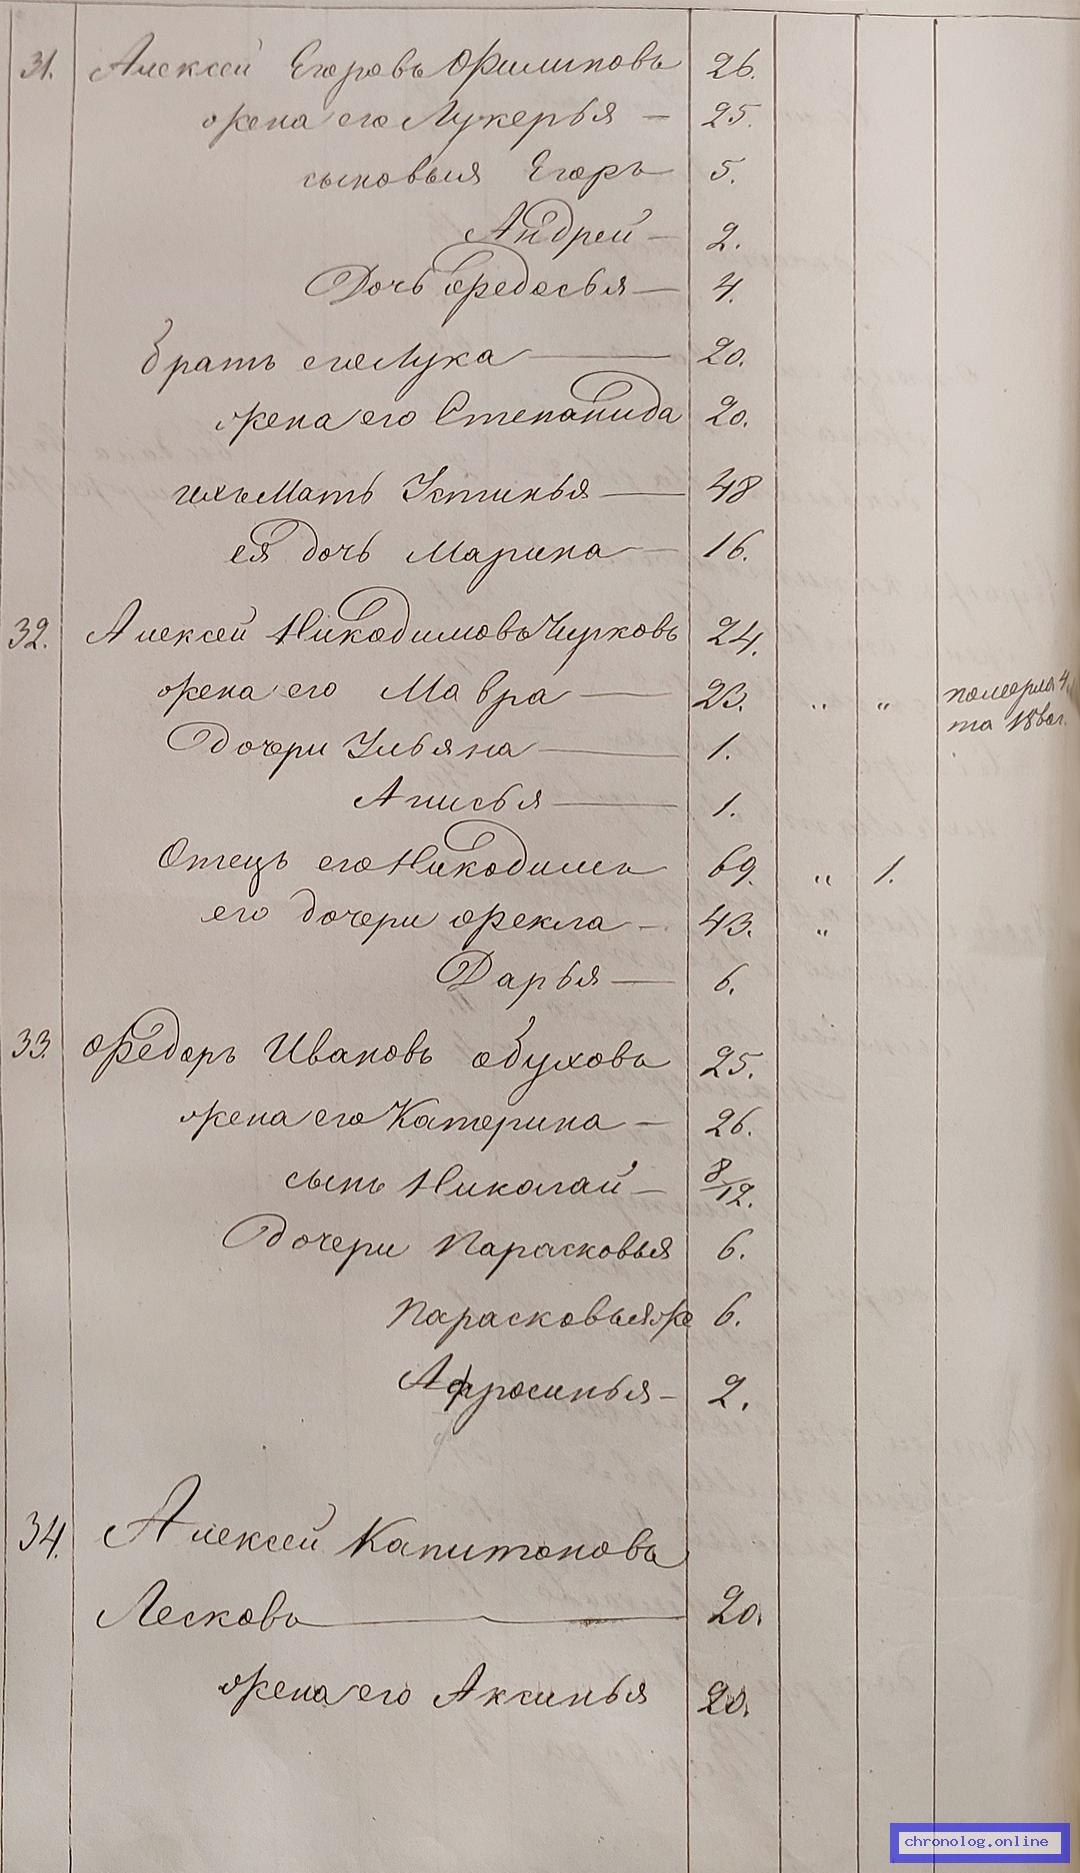 31. Алексей Егоровъ Филиповъ 26.
жена его Лукерья — 25.
сыновья Егоръ 5.
Андрей — 2.
Дочь Федосья — 4.
братъ его Лука — 20.
жена его Степанида 20.
ихъ Мать Устинья — 48
ея дочь Марина — 16.
32. Алексей Никодимовъ Чирковъ 24.
жена его Мавра — 23. „ „ померла 4.
та 18
дочери Ульяна — 1.
Анисья — 1.
Отецъ его Никодимъ 69. „ 1.
его дочери Фекла — 43. „
Дарья — 6.
33. Федоръ Ивановъ Обуховъ 25.
жена его Катерина — 26.
сынъ Николай — 8/12.
дочери Парасковья 6.
Парасковья же 6.
Афросинья — 2.
34. Алексей Капитоновъ
Лесковъ — 20.
жена его Аксинья 20.
chronolog.online